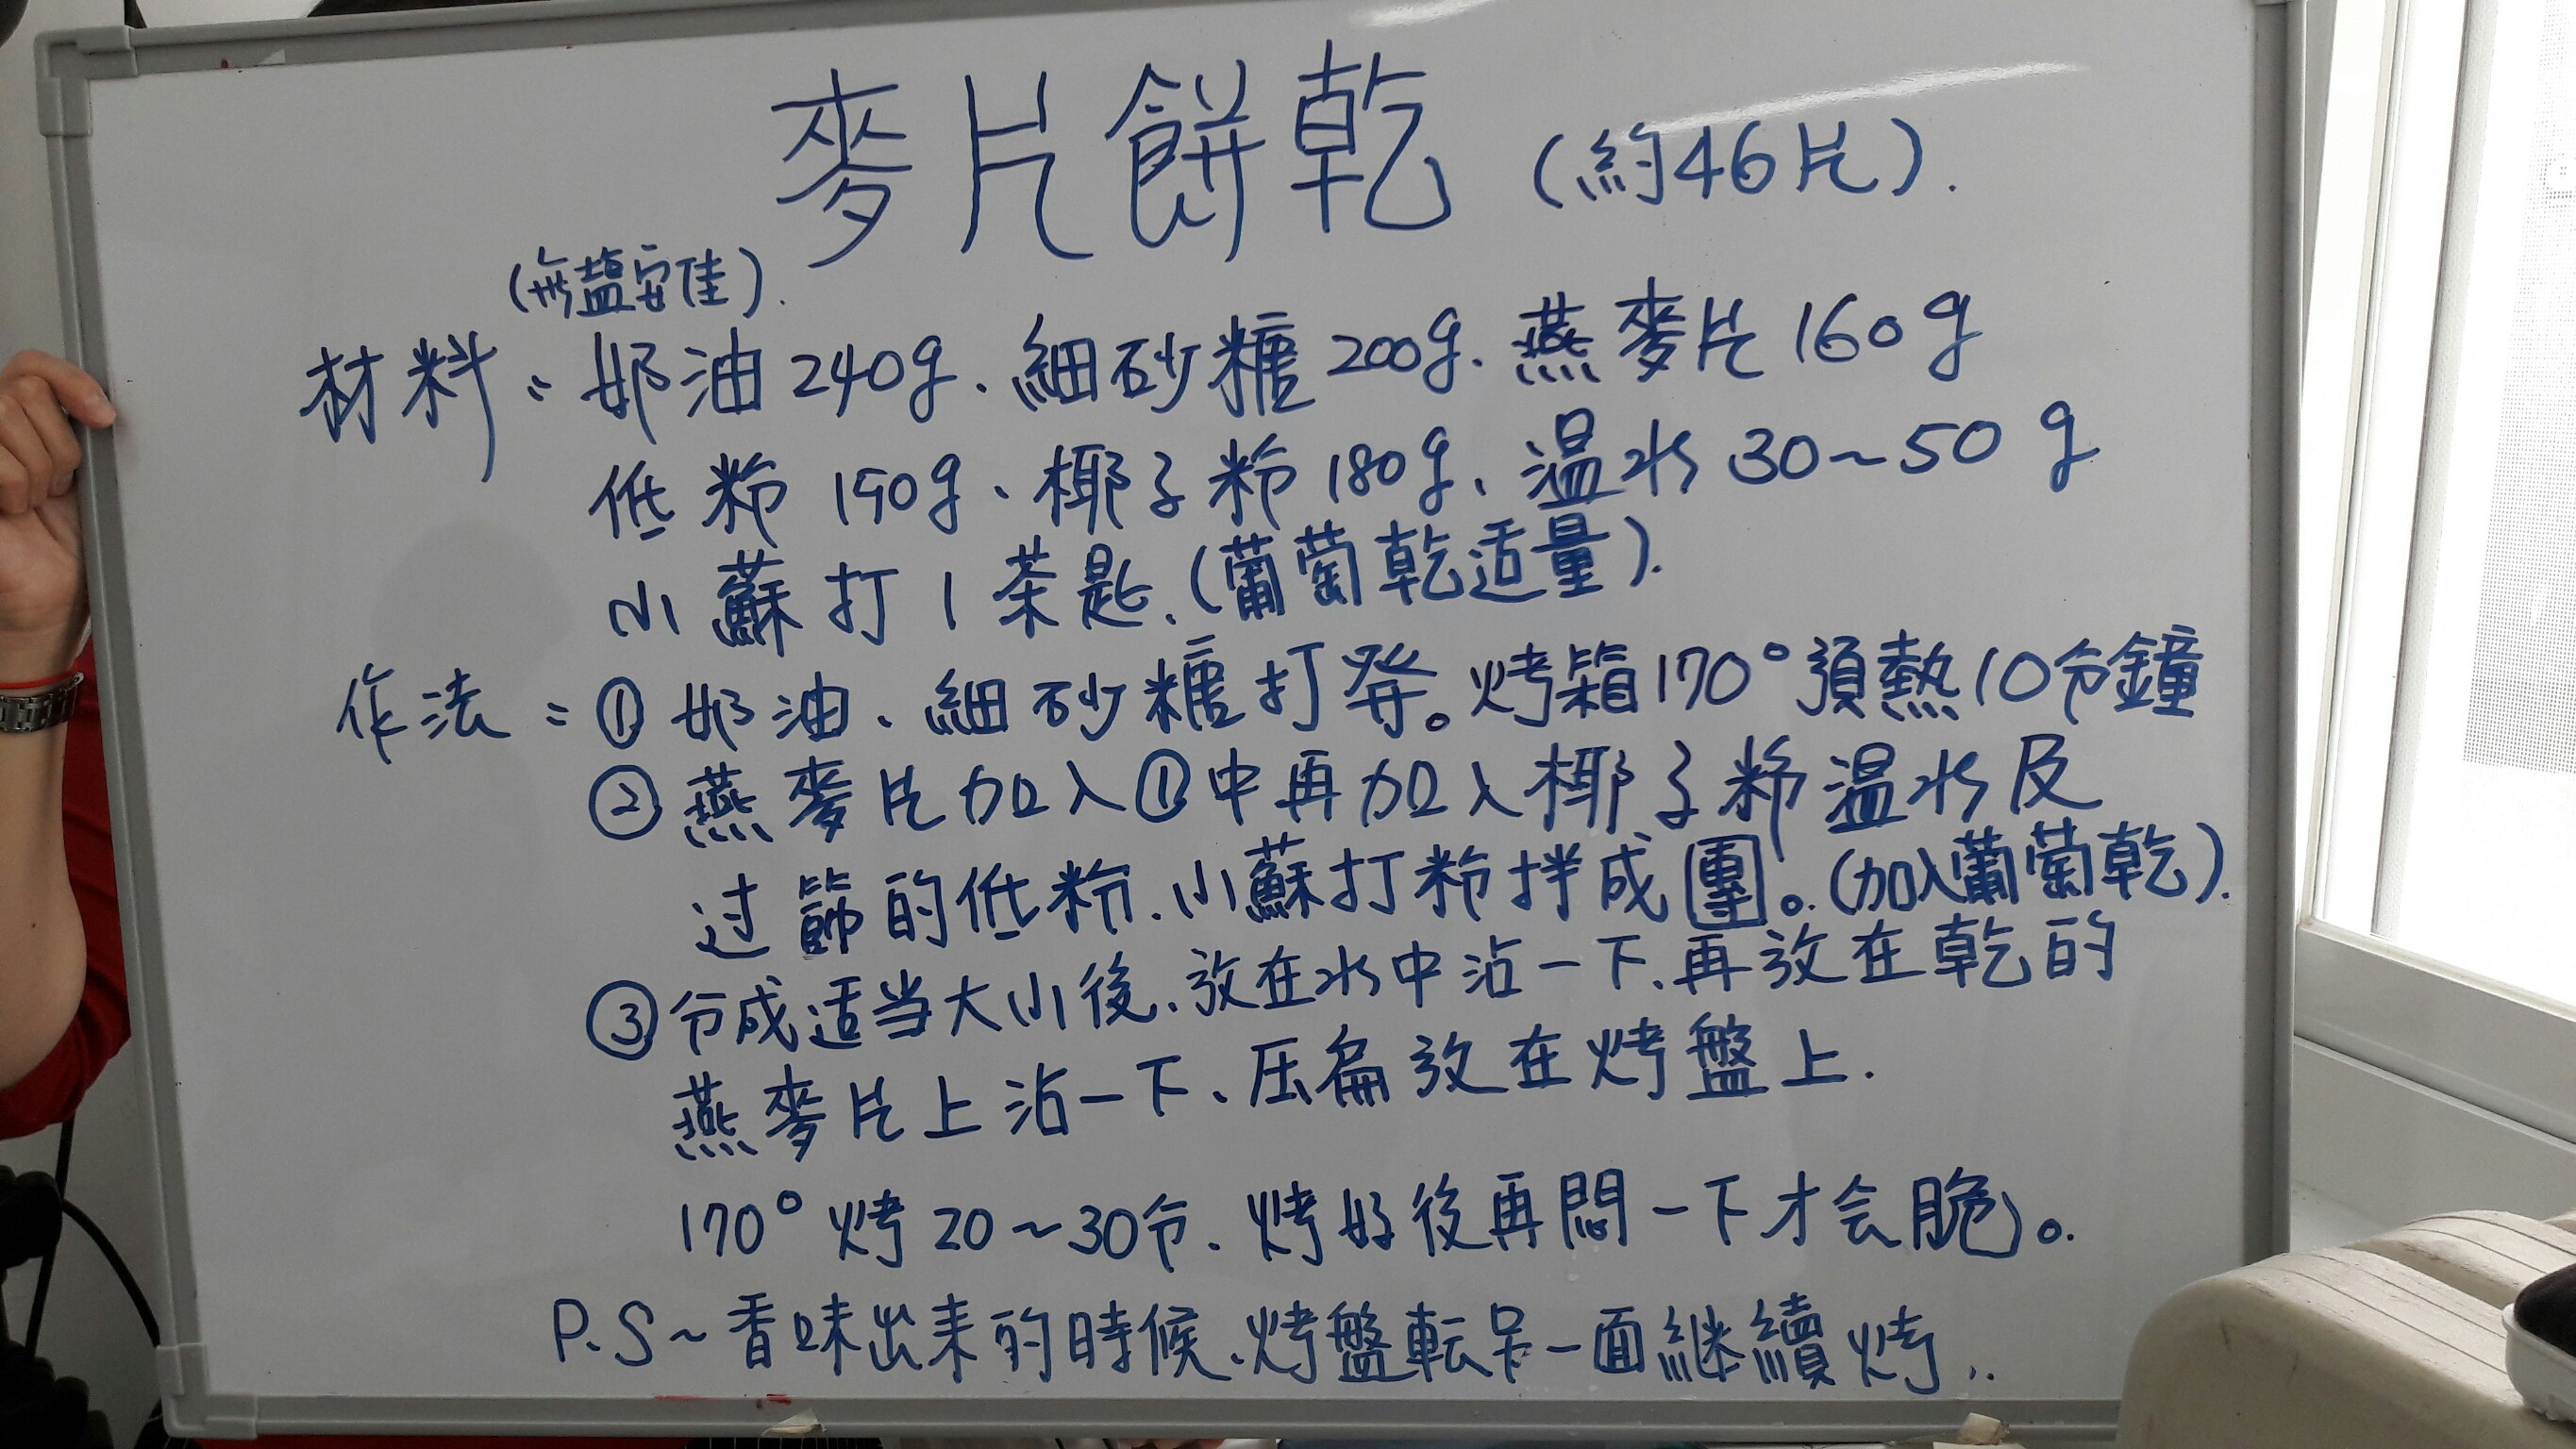 麥片餅乾 (約46片).
(無鹽安佳).
材料：奶油240g、細砂糖200g、燕麥片160g
低粉190g、椰子粉180g、溫水30~50g
小蘇打1茶匙、(葡萄乾适量).
作法：①奶油、細砂糖打発。烤箱170°預熱10分鐘
②燕麥片加入①中再加入椰子粉溫水及
过篩的低粉、小蘇打粉拌成團。(加入葡萄乾).
③分成适当大小後、放在水中沾一下、再放在乾的
燕麥片上沾一下、压扁放在烤盤上.
170°烤20~30分、烤好後再悶一下才会脆。
P.S~香味出来的時候、烤盤転另一面継續烤..